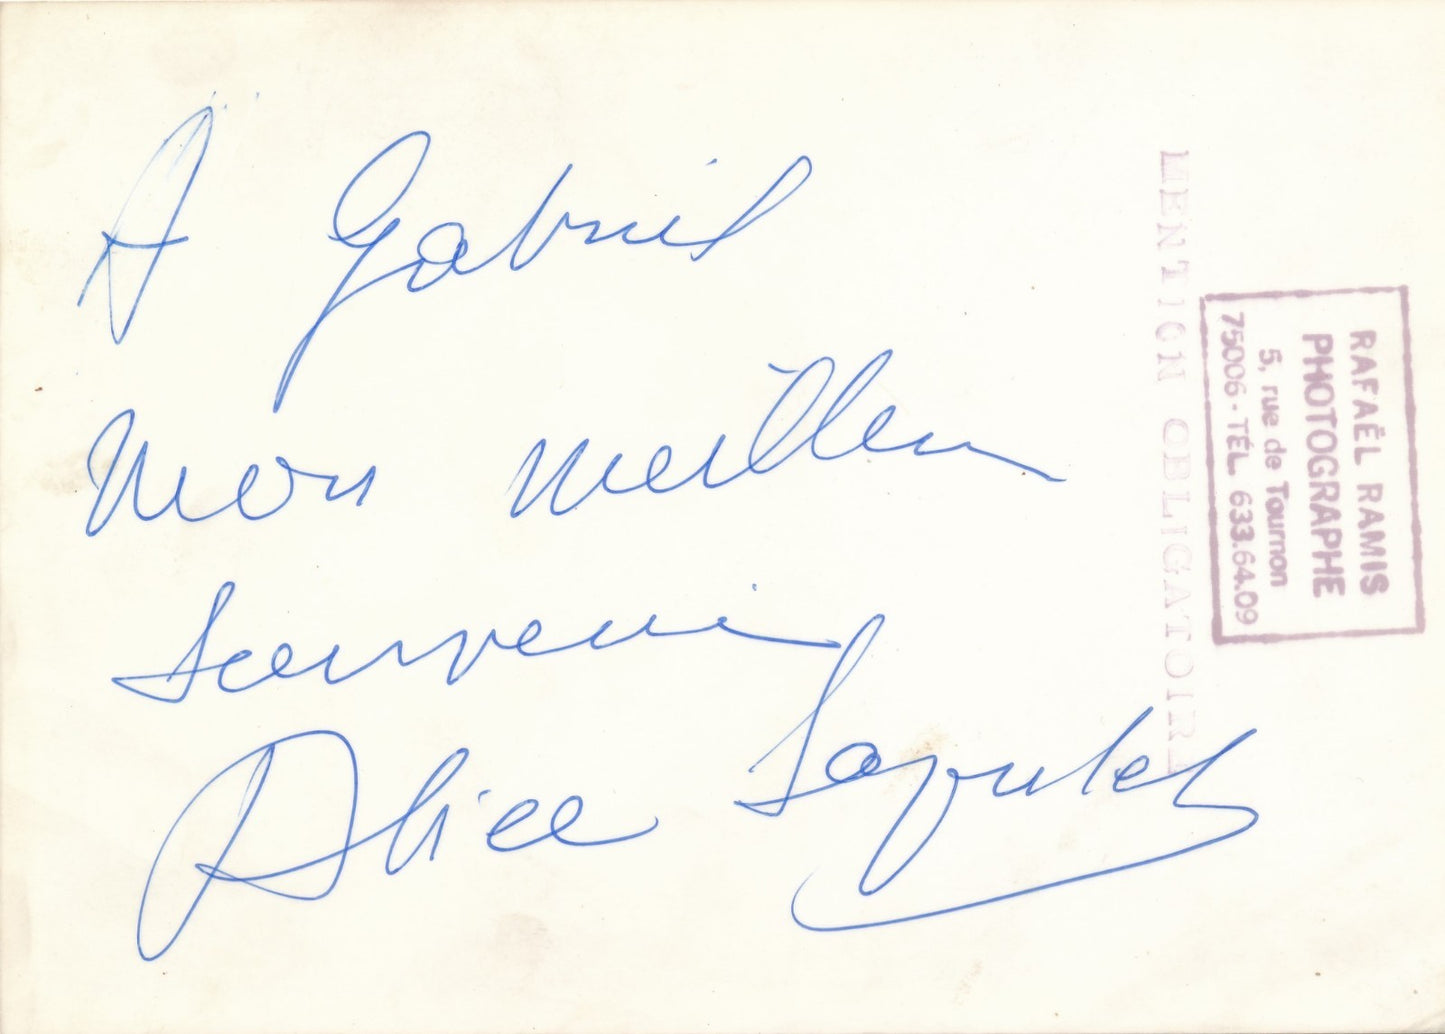 A Gabriel
Mon meilleur
Souvenir
Alice Sapritch
MENTION OBLIGATOIRE
RAFAËL RAMIS
PHOTOGRAPHE
5, rue de Tournon
75006 - TÉL. 633.64.09